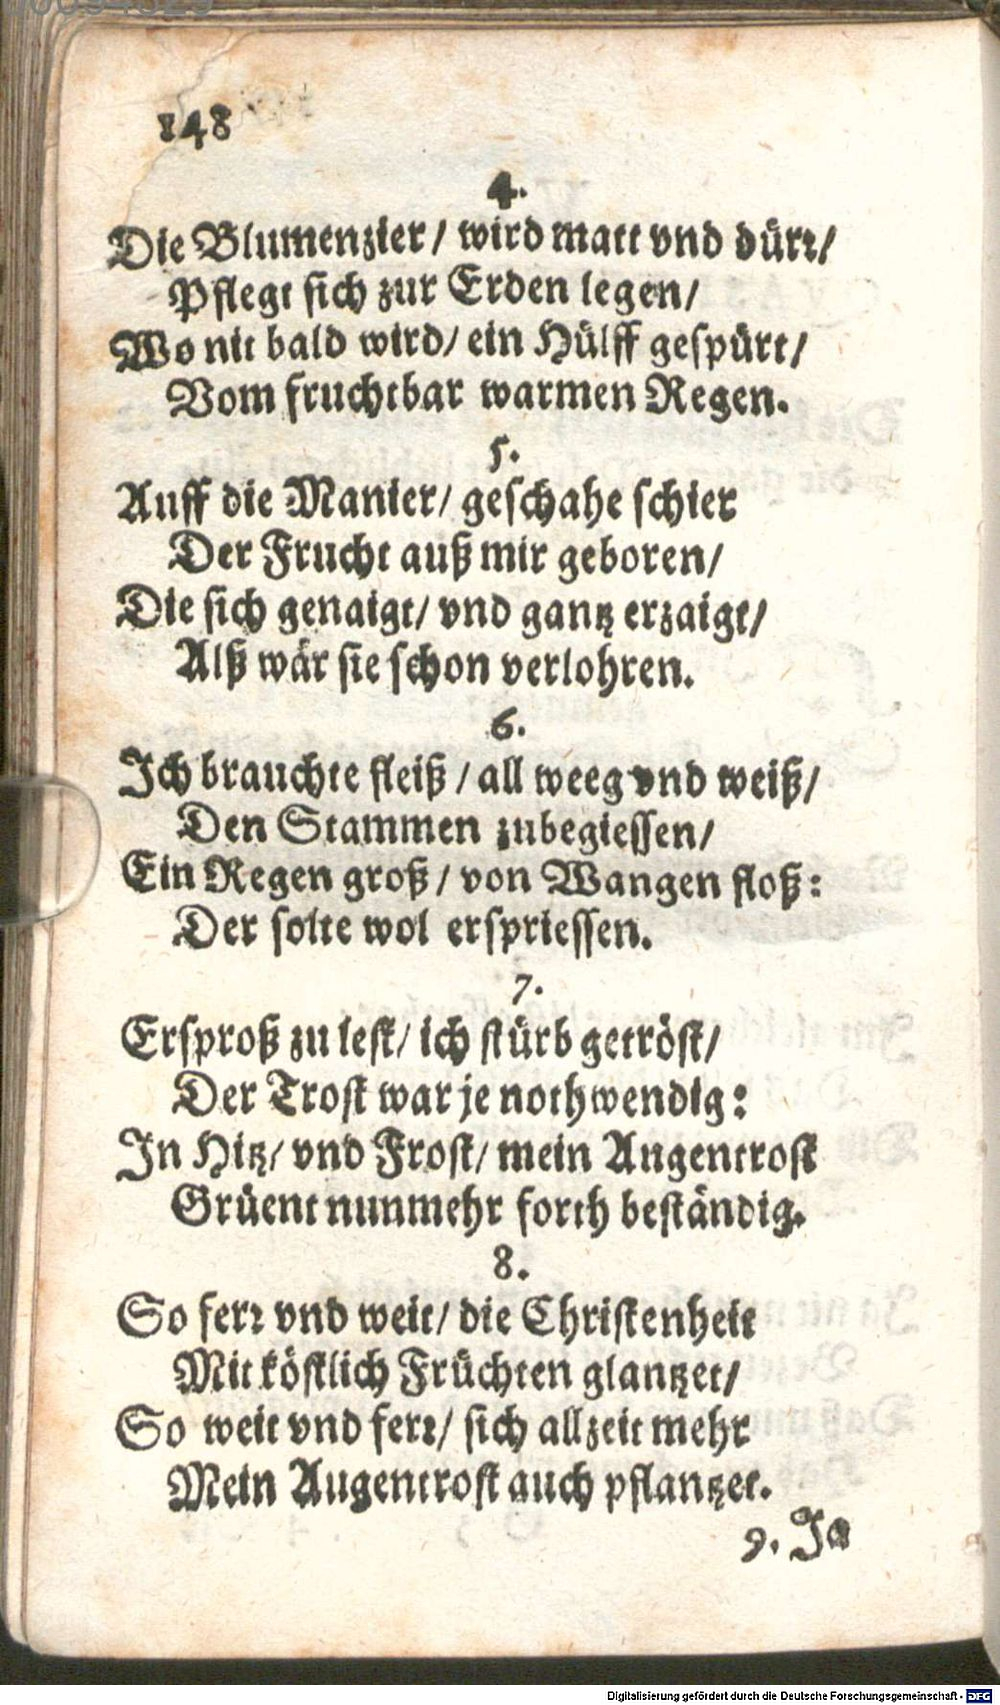 148
4.
Die Blumenzier/ wird matt vnd dürr/
Pflegt sich zur Erden legen/
Wo nit bald wird/ ein Hülff gespürt/
Vom fruchtbar warmen Regen.
5.
Auff die Manier/ geschahe schier
Der Frucht auß mir geboren/
Die sich genaigt/ vnd gantz erzaigt/
Alß wär sie schon verlohren.
6.
Ich brauchte fleiß / all weeg vnd weiß/
Den Stammen zubegiessen/
Ein Regen groß / von Wangen floß:
Der solte wol erspriessen.
7.
Ersproß zu lest/ ich stürb getröst/
Der Trost war je nothwendig:
In Hitz/ vnd Frost/ mein Augentrost
Grüent nunmehr forth beständig.
8.
So ferr vnd weit/ die Christenheit
Mit köstlich Früchten glantzet/
So weit vnd ferr/ sich allzeit mehr
Mein Augentrost auch pflantzet.
9. Ja
Digitalisierung gefördert durch die Deutsche Forschungsgemeinschaft - DFG